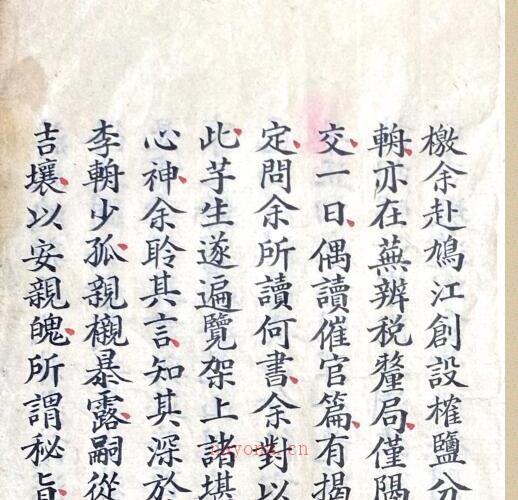 檄余赴鳩江創設榷鹽
輈亦在蕪辨税釐局僅隔
交一日偶讀催官篇有揭
定問余所讀何書余對以
此芋生遂遍覽架上諸堪
心神余聆其言知其深於
李輈少孤親櫬暴露嗣從
吉壤以安親魄所謂秘旨